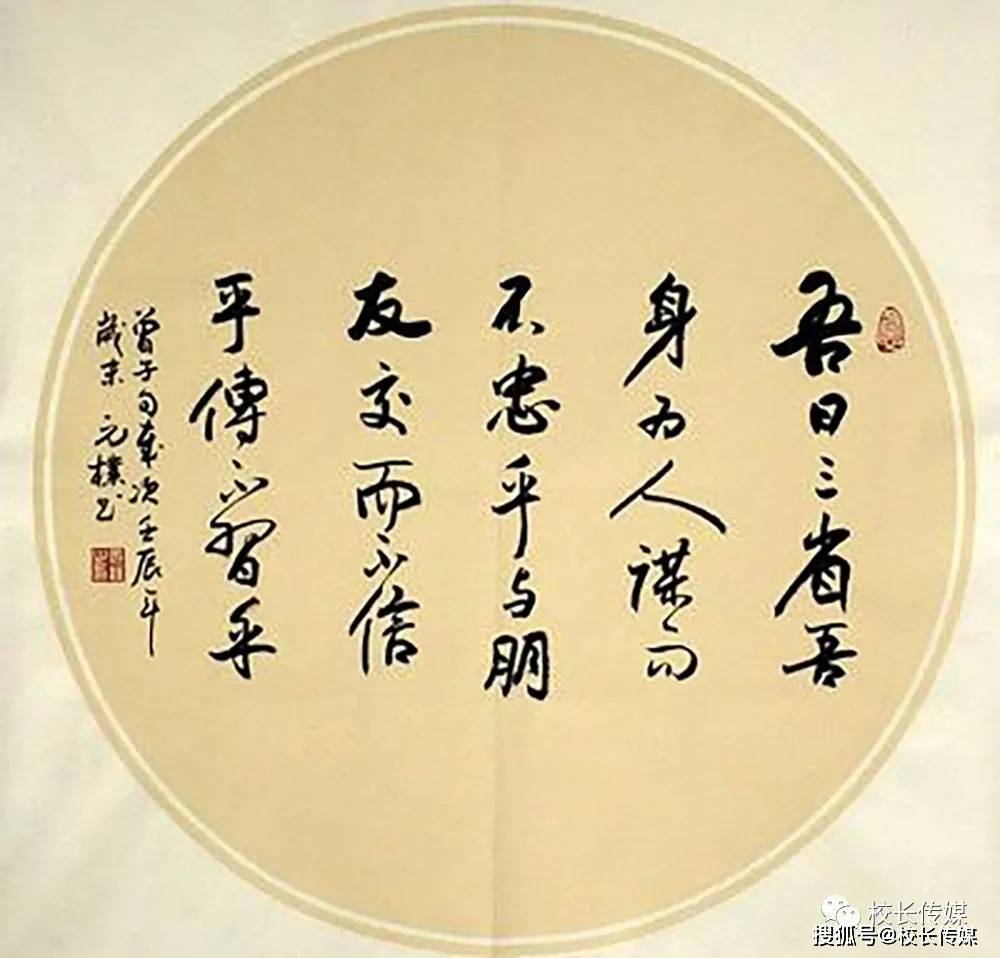 吾日三省吾
身为人谋而
不忠乎与朋
友交而不信
乎傳不習乎
曾子句歲次壬辰年
歲末 元樸书
校长传媒
搜狐号@校长传媒